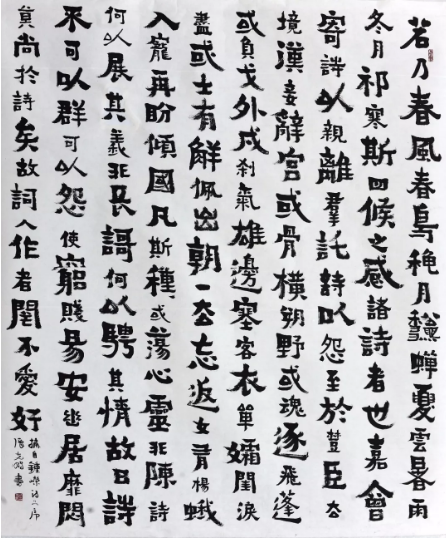 若乃春風春鳥穐月龝蟬夏雲暑雨
冬月祁寒斯四候之感諸詩者也嘉會
寄詩以親離羣託詩以怨至於楚臣去
境漢妾辭宮或骨橫朔野或魂逐飛蓬
或負戈外戍刹氣雄邊塞客衣單孀閨淚
盡或士有解佩出朝一去忘返女有揚蛾
入寵再盼傾國凡斯種種或蕩心靈非陳詩
何以展其義非長謌何以騁其情故曰詩
来可以群可以怨使窮賤易安幽居靡悶
莫尚於詩矣故詞人作者罔不愛好
摘自鍾嶸詩品序
書